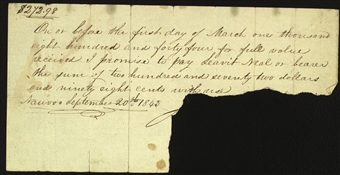 $272.98
On or before the first day of March one thousand
eight hundred and forty four for full value
received I promise to pay Leavit Neal or bearer
the sum of two hundred and seventy two dollars
and ninety eight cents with
Nauvoo September 20th 1843